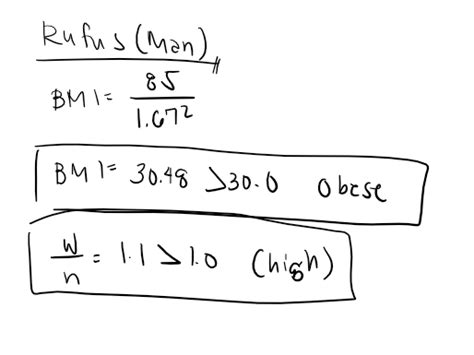 Rufus (Man)
BMI = 85 / 1.67²
BMI = 30.48 > 30.0 Obese
W/h = 1.1 > 1.0 (high)